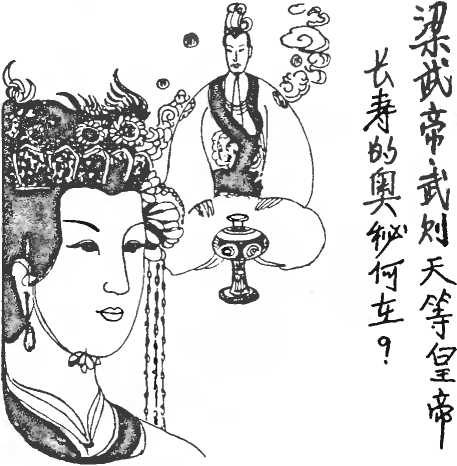 梁武帝、武则天等皇帝
长寿的奥秘何在？